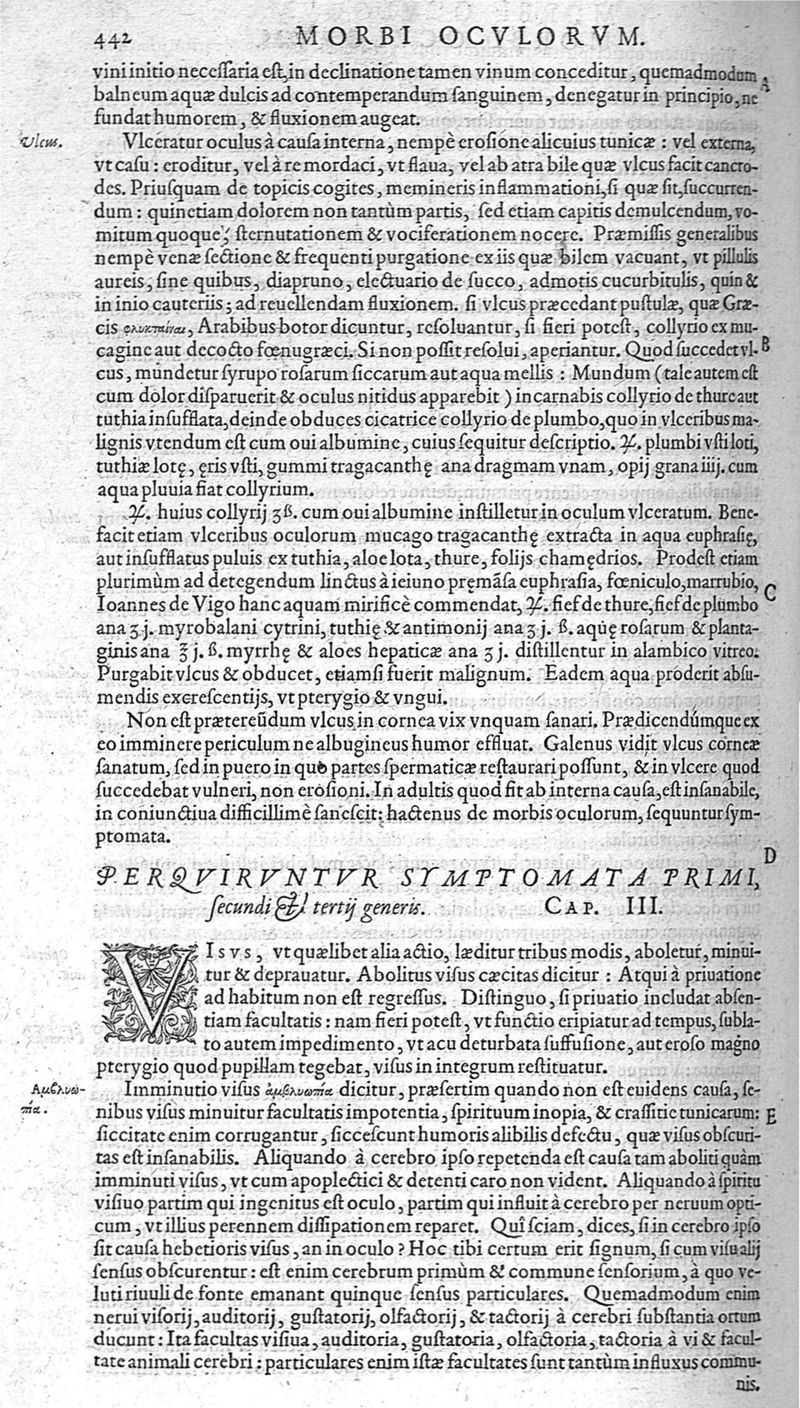 442 MORBI OCVLORVM.
vini initio necessaria est, in declinatione tamen vinum conceditur, quemadmodum A
balneum aquæ dulcis ad contemperandum sanguinem, denegatur in principio, ne
fundat humorem, & fluxionem augeat.
Vlcus. Vlceratur oculus à causa interna, nempè erosione alicuius tunicæ : vel externa,
vt casu : eroditur, vel à re mordaci, vt flaua, vel ab atra bile quæ vlcus facit cancro-
des. Priusquam de topicis cogites, memineris inflammationi, si quæ sit, succurren-
dum : quinetiam dolorem non tantùm partis, sed etiam capitis demulcendum, vo-
mitum quoque, sternutationem & vociferationem nocere. Præmissis generalibus
nempè venæ sectione & frequenti purgatione ex iis quæ bilem vacuant, vt pillulis
aureis, sine quibus, diapruno, electuario de succo, admotis cucurbitulis, quin &
in inio cauteriis ; ad reuellendam fluxionem. si vlcus præcedant pustulæ, quæ Græ-
cis φλυκταίναι, Arabibus botor dicuntur, resoluantur, si fieri potest, collyrio ex mu-
cagine aut decocto fœnugræci. Si non possit resolui, aperiantur. Quod succedet vl- B
cus, mundetur syrupo rosarum siccarum aut aqua mellis : Mundum (tale autem est
cum dolor disparuerit & oculus nitidus apparebit ) incarnabis collyrio de thure aut
tuthia insufflata, deinde obduces cicatrice collyrio de plumbo, quo in vlceribus ma-
lignis vtendum est cum oui albumine, cuius sequitur descriptio. ℞. plumbi vsti loti,
tuthiæ lotę, ęris vsti, gummi tragacanthę ana dragmam vnam, opij grana iiij. cum
aqua pluuia fiat collyrium.
℞. huius collyrij ʒß. cum oui albumine instilletur in oculum vlceratum. Bene-
facit etiam vlceribus oculorum mucago tragacanthę extracta in aqua euphrasię,
aut insufflatus puluis ex tuthia, aloe lota, thure, folijs chamędrios. Prodest etiam
plurimùm ad detegendum linctus à ieiuno pręmãsa euphrasia, fœniculo, marrubio,
Ioannes de Vigo hanc aquam mirificè commendat, ℞. sief de thure, sief de plumbo C
ana ʒ j. myrobalani cytrini, tuthię & antimonij ana ʒ j. ß. aqųę rosarum & planta-
ginis ana ℥ j. ß. myrrhę & aloes hepaticæ ana ʒ j. distillentur in alambico vitreo.
Purgabit vlcus & obducet, etiamsi fuerit malignum. Eadem aqua proderit absu-
mendis excrescentijs, vt pterygio & vngui.
Non est prætereũdum vlcus in cornea vix vnquam sanari. Prædicendúmque ex
eo imminere periculum ne albugineus humor effluat. Galenus vidit vlcus corneæ
sanatum, sed in puero in quo partes spermaticæ restaurari possunt, & in vlcere quod
succedebat vulneri, non erosioni. In adultis quod fit ab interna causa, est insanabile,
in coniunctiua difficillimè sanescit; hactenus de morbis oculorum, sequuntur sym-
ptomata.
D
PERQVIRVNTVR SYMPTOMATA PRIMI,
secundi & tertij generis. CAP. III.
VISVS, vt quælibet alia actio, læditur tribus modis, aboletur, minui-
tur & deprauatur. Abolitus visus cæcitas dicitur : Atqui à priuatione
ad habitum non est regressus. Distinguo, si priuatio includat absen-
tiam facultatis : nam fieri potest, vt functio eripiatur ad tempus, subla-
to autem impedimento, vt acu deturbata suffusione, aut eroso magno
pterygio quod pupillam tegebat, visus in integrum restituatur.
Αμβλυω- Imminutio visus ἀμβλυωπία dicitur, præsertim quando non est euidens causa, se-
πία. nibus visus minuitur facultatis impotentia, spirituum inopia, & crassitie tunicarum: E
siccitate enim corrugantur, siccescunt humoris alibilis defectu, quæ visus obscuri-
tas est insanabilis. Aliquando à cerebro ipso repetenda est causa tam aboliti quàm
imminuti visus, vt cum apoplectici & detenti caro non vident. Aliquando à spiritu
visiuo partim qui ingenitus est oculo, partim qui influit à cerebro per neruum opti-
cum, vt illius perennem dissipationem reparet. Quî sciam, dices, si in cerebro ipso
sit causa hebetioris visus, an in oculo ? Hoc tibi certum erit signum, si cum visu alij
sensus obscurentur : est enim cerebrum primùm & commune sensorium, à quo ve-
luti riuuli de fonte emanant quinque sensus particulares. Quemadmodum enim
nerui visorij, auditorij, gustatorij, olfactorij, & tactorij à cerebri substantia ortum
ducunt : Ita facultas visiua, auditoria, gustatoria, olfactoria, tactoria à vi & facul-
tate animali cerebri : particulares enim istæ facultates sunt tantùm influxus commu-
nis.